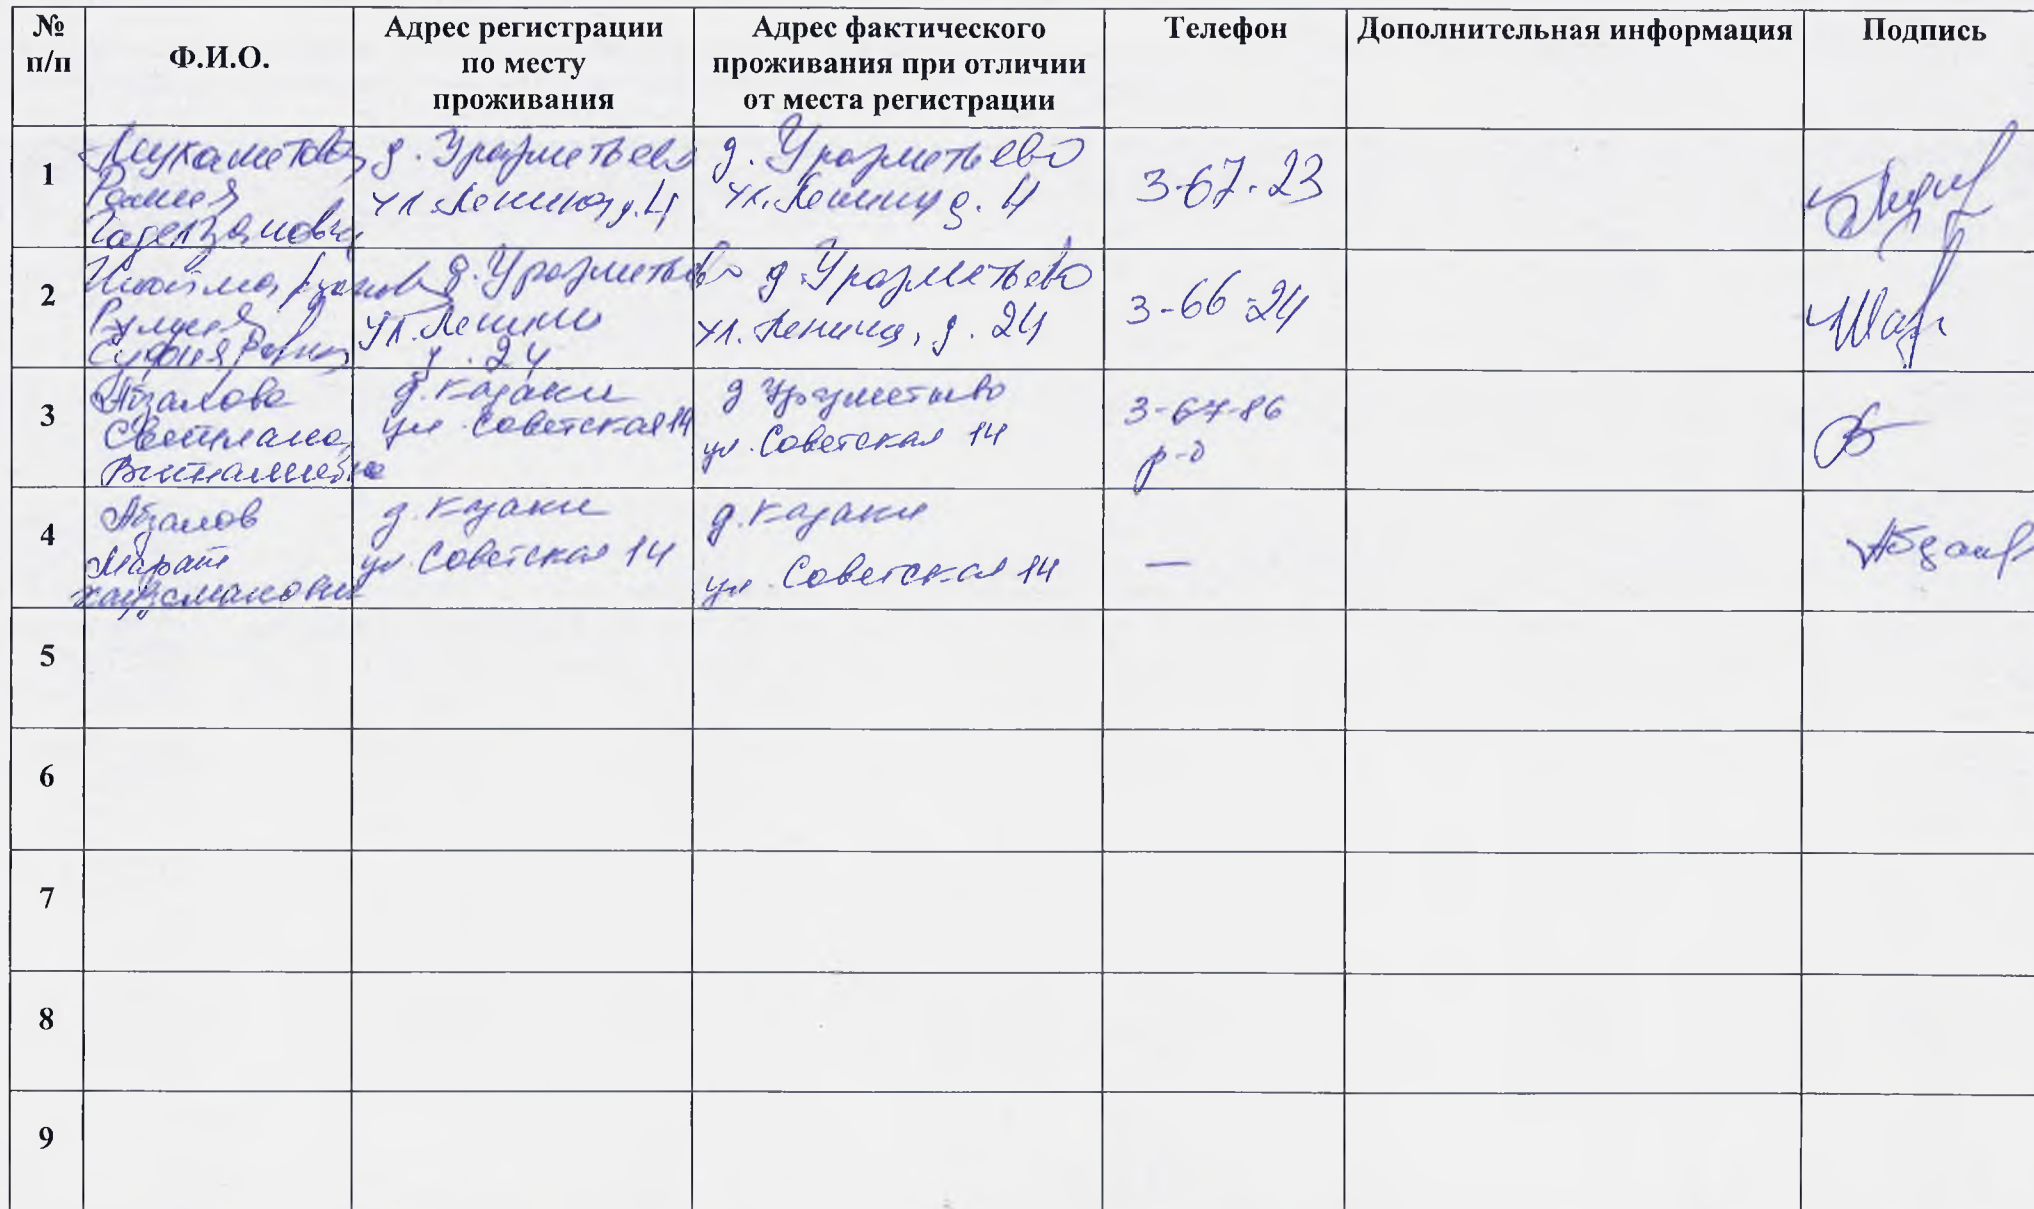 № п/п
Ф.И.О.
Адрес регистрации
по месту
проживания
Адрес фактического
проживания при отличии
от места регистрации
Телефон
Дополнительная информация
Подпись
1
Мухаметова
д. Уразметьево
ул. Ленина, д. 4
д. Уразметьево
ул. Ленина д. 4
3-67-23
2
д. Уразметьево
ул. Ленина
д. 24
д. Уразметьево
ул. Ленина, д. 24
3-66-24
3
Абзалова
Светлана
д. Казаки
ул. Советская 14
д Уразметьево
ул. Советская 14
3-67-86
р-д
4
Абзалов
Марат
д. Казаки
ул. Советская 14
д. Казаки
ул. Советская 14
—
5
6
7
8
9